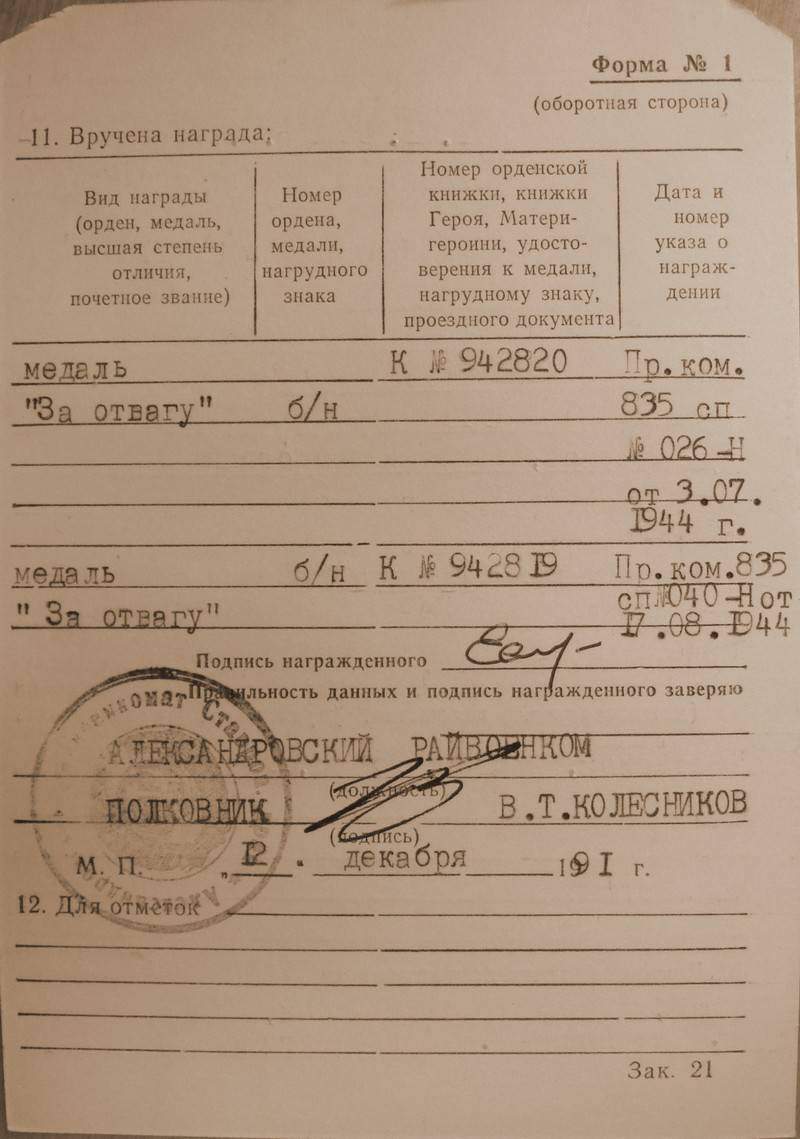 Форма № 1
(оборотная сторона)
11. Вручена награда;
Вид награды
(орден, медаль,
высшая степень
отличия,
почетное звание)
Номер
ордена,
медали,
нагрудного
знака
Номер орденской
книжки, книжки
Героя, Матери-
героини, удосто-
верения к медали,
нагрудному знаку,
проездного документа
Дата и
номер
указа о
награж-
дении
медаль К № 942820 Пр.ком.
"За отвагу" б/н 835 сп
№ 026-Н
от 3.07.
1944 г.
медаль б/н К № 942819 Пр.ком.835
" За отвагу" сп№040-Н от
17.08.1944
Подпись награжденного
Правильность данных и подпись награжденного заверяю
АЛЕКСАНДРОВСКИЙ РАЙВОЕНКОМ
(должность)
ПОЛКОВНИК В.Т.КОЛЕСНИКОВ
(подпись)
М. П. „ 12 . декабря г.
12. Для отметок
Зак. 21